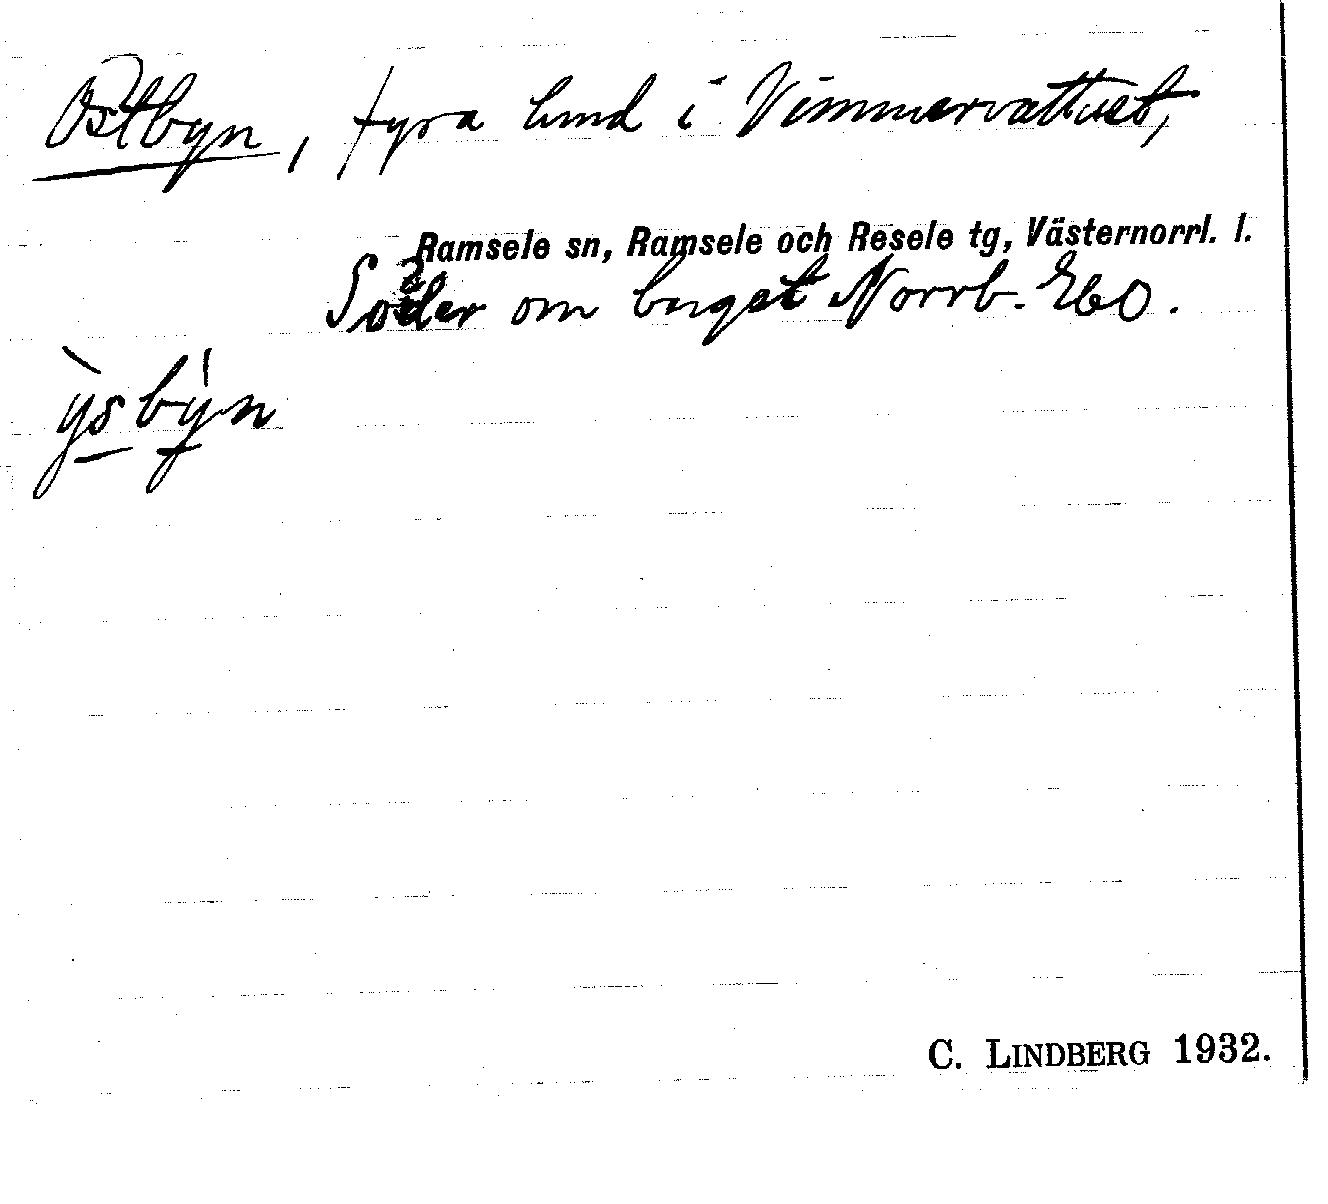 Östbyn, fyra hmd i Vimmervattnet,
Ramsele sn, Ramsele och Resele tg, Västernorrl. l.
Söder om berget Norrb. Eko.
ỳsbýn
C. LINDBERG 1932.